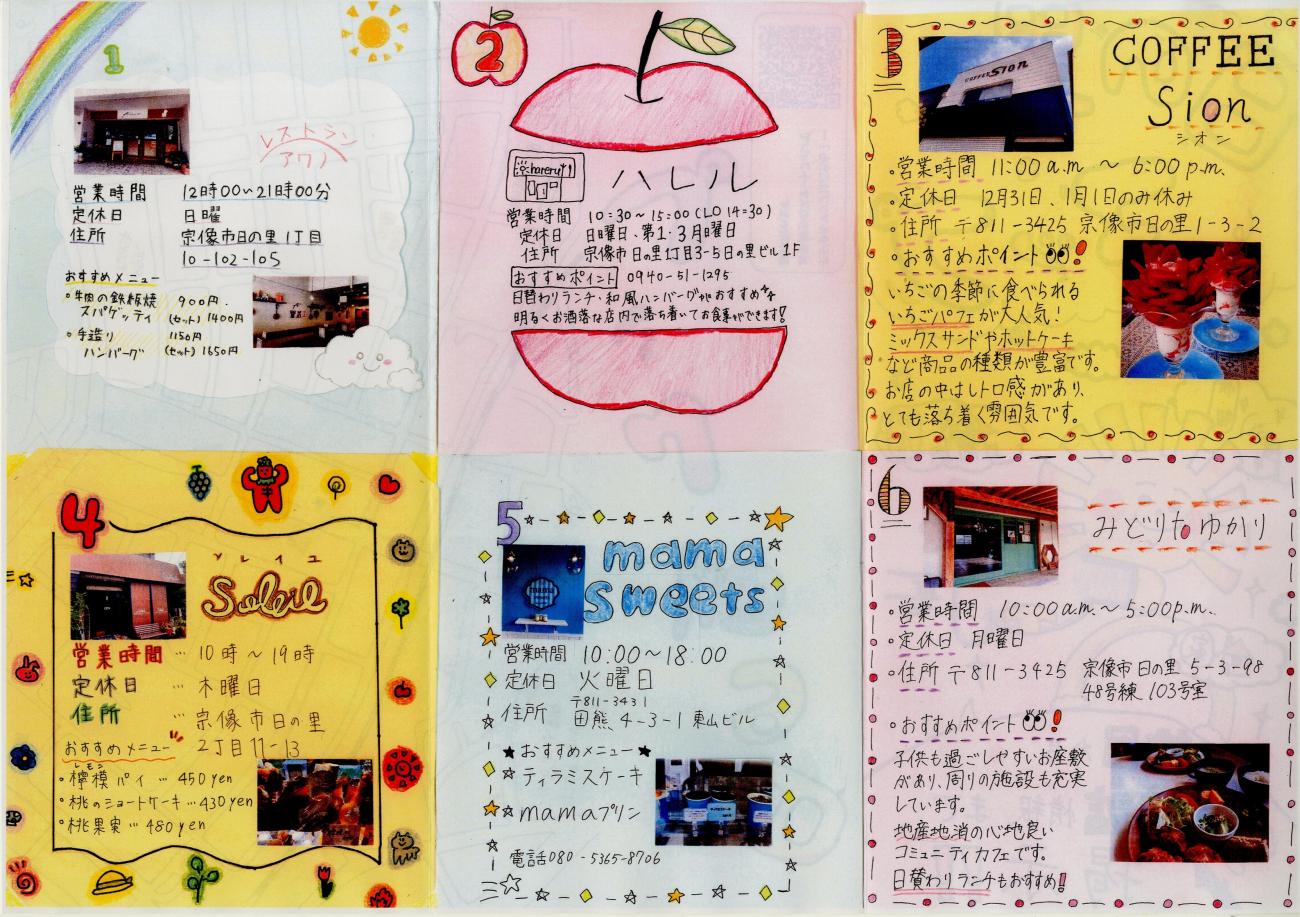 1
レストラン
アワノ
営業時間 12時00〜21時00分
定休日 日曜
住所 宗像市日の里1丁目
10-102-105
おすすめメニュー
・牛肉の鉄板焼 900円.
スパゲッティ (セット) 1400円
・手造り 1150円
ハンバーグ (セット) 1650円
2
hareru
ハレル
営業時間 10:30〜15:00(LO 14:30)
定休日 日曜日、第1・3月曜日
住所 宗像市日の里1丁目3-5日の里ビル1F
おすすめポイント 0940-51-1295
日替わりランチ・和風ハンバーグがおすすめ
明るくお洒落な店内で落ち着いてお食事ができます!
3
COFFEE Sion
COFFEE
Sion
シオン
・営業時間 11:00a.m 〜 6:00p.m.
・定休日 12月31日、1月1日のみ休み
・住所 〒811-3425 宗像市日の里1-3-2
・おすすめポイント!
いちごの季節に食べられる
いちごパフェが大人気!
ミックスサンドやホットケーキ
など商品の種類が豊富です。
お店の中はレトロ感があり、
とても落ち着く雰囲気です。
4
ソレイユ
Soleil
営業時間 … 10時〜19時
定休日 … 木曜日
住所 … 宗像市日の里
2丁目11-13
おすすめメニュー
レモン
・檸檬パイ … 450yen
・桃のショートケーキ…430yen
・桃果実 … 480yen
5
mama
sweets
mama
営業時間 10:00〜18:00
定休日 火曜日
〒811-3431
住所 田熊4-3-1 東山ビル
★おすすめメニュー★
☆ティラミスケーキ
☆mamaプリン
電話080-5365-8706
6
みどりtoゆかり
・営業時間 10:00a.m.〜5:00p.m.
・定休日 月曜日
・住所 〒811-3425 宗像市日の里5-3-98
48号棟103号室
・おすすめポイント!
子供も過ごしやすいお座敷
があり、周りの施設も充実
しています。
地産地消の心地良い
コミュニティカフェです。
日替わりランチもおすすめ!